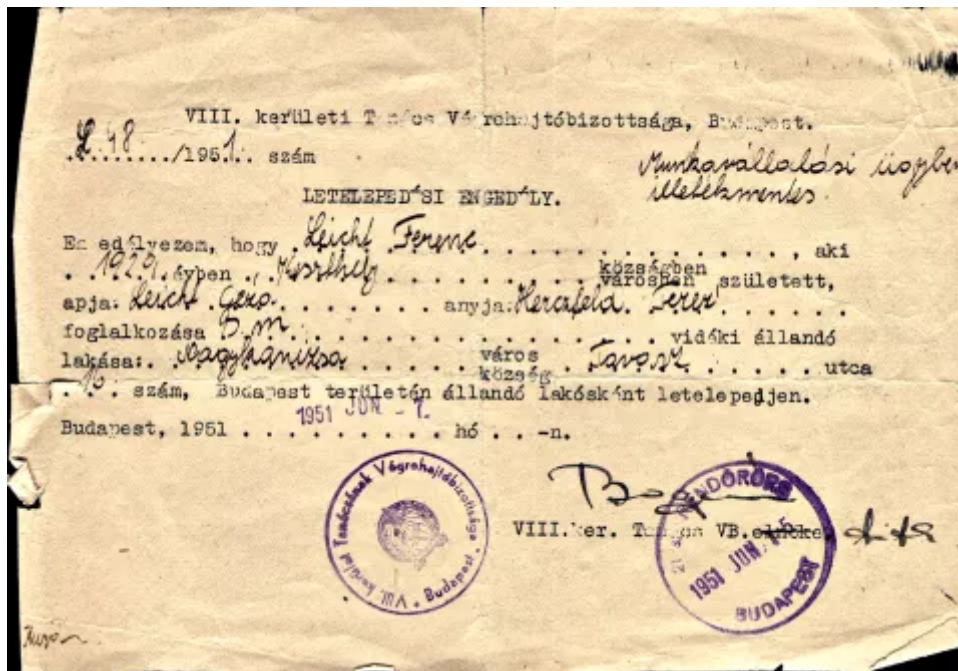 VIII. kerületi Tanács Végrehajtóbizottsága, Budapest.
L. 48 ......../1951. szám
Munkavállalási ügyben
illetékmentes.
LETELEPEDÉSI ENGEDÉLY.
En edélyezem, hogy Leicht Ferenc . . . . . . . . . . . . . . . . . , aki
. 1929. évben . Keszthely . . . . . . . . . községben városban született,
apja: Leicht Géza . . . . . . anyja: Herczfeld Teréz . . . . . .
foglalkozása . . . . . . . . . . . . . . . . . . . vidéki állandó
lakása: . Nagykanizsa . . . . . város község . Tavasz . . . . . . utca
. . . szám, Budapest területén állandó lakósként letelepedjen.
1951 JUN - 7.
Budapest, 1951 . . . . . . . . . . hó . . . -n.
VIII. kerületi Tanácsának Végrehajtóbizottsága * Budapest *
VIII.ker. Tanács VB. elnöke
RENDŐRŐRS
1951 JUN.
BUDAPEST